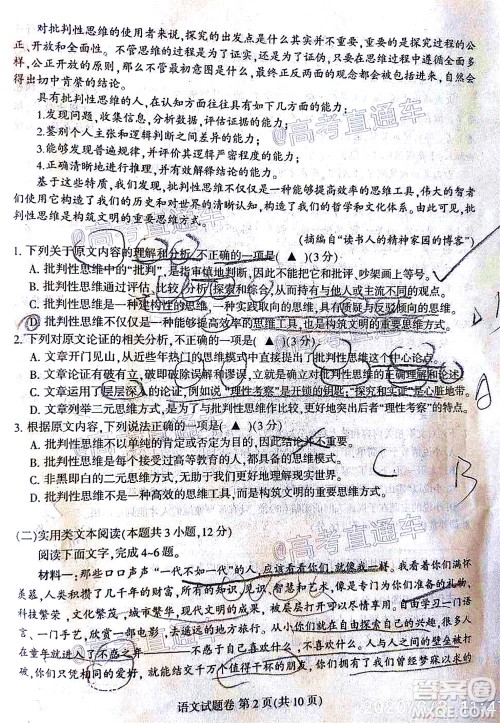 对批判性思维的使用者来说，探究的出发点是什么其实并不重要，重要的是探究过程的公
正、开放和全面性。不管思维的过程是为了证实，还是为了证伪，只要在思维过程中遵循全面多
样，公正开放的原则，那么不管最初意图是什么，最终正反两面的观念都会包括进来，最后才会
得出切中肯綮的结论。
具有批判性思维的人，在认知方面往往具有如下几方面的能力：
1.发现问题，收集信息，分析数据，评估证据的能力；
2.鉴别个人主张和逻辑判断之间的差异的能力；
3.能够发现规律和逻辑关系的能力；
4.正确清晰地进行推理，并有效解释结论的能力。
基于这些特质，我们发现，批判性思维不仅仅是一种能够提高效率的思维工具，伟大的智者
们使用它构筑了我们的历史和对世界的整体性认识，构筑了我们的哲学和文化体系。由此可见，批
判性思维是构筑文明的重要思维方式。
（摘编自“读书人的精神家园的博客”）
1. 下列关于原文内容的理解和分析，不正确的一项是( ▲ )(3分)
A. 批判性思维中的“批判”，是指审慎地判断，因此不能把它与批评、吵架画上等号。
B. 批判性思维通过评估、比较、分析、探索和综合，从而形成可能与他人或主流不同的观点。
C. 批判性思维是一种建构性的思维，具有质疑与反驳倾向的思维是与其相对立的。
D. 批判性思维不仅仅是一种能够提高效率的思维工具，也是构筑文明的重要思维方式。
2. 下列对原文论证的相关分析，不正确的一项是( ▲ )(3分)
A. 文章开门见山，从近些年热门的思维模式中直接提出了批判性思维这个中心论点。
B. 文章论证有破有立，破即破即思维误谬，立即立批判性思维的正确理解和论述。
C. 文章运用了层层深入的论证，例如说“理性考察”是开锁的钥匙；“探究和实证”是心脏地带。
D. 文章列举二元思维方式，与批判性思维方式形成对比，更好地突出后者“理性考察”的特点。
3. 根据原文内容，下列说法正确的一项是( ▲ )(3分)
A. 批判性思维不是一种单纯的肯定或者否定的思维，因此结论并不重要。
B. 批判性思维是一种接受过高等教育的人都具有，一般人都没有的思维。
C. 非黑即白的二元思维方式，无助于我们更好地理解现实世界。
D. 批判性思维是一种高效的思维，是构筑文明的重要思维方式。
(二)实用类文本阅读(本题共3小题，12分)
阅读下面文字，完成4~6题。
材料一：那些口口声声“一代不如一代”的人，应该看看你们，就像我一样。我看着你们，满怀
羡慕。人类积攒了几千年的财富，所有的知识、见识、智慧和艺术，像是专门为你们准备的礼物，
科技繁荣、文化繁茂、城市繁华，现代文明的成果，被层层打开可以尽情地享用。自由学习一门语
言、一门手艺，欣赏一部电影，去遥远的地方旅行。很多人从小你们就在自由探索自己的兴趣，很多人
在童年就进入了不惑之年——不惑于自己喜欢什么，不喜欢什么。人与人之间的壁垒被打破，
你们只凭相同的爱好，就能结交千万个值得干杯的朋友。你们拥有了，我们曾经梦寐以求的权
语文试题卷 第2页(共10页)
高考直通车
高考直通车
C
B
A